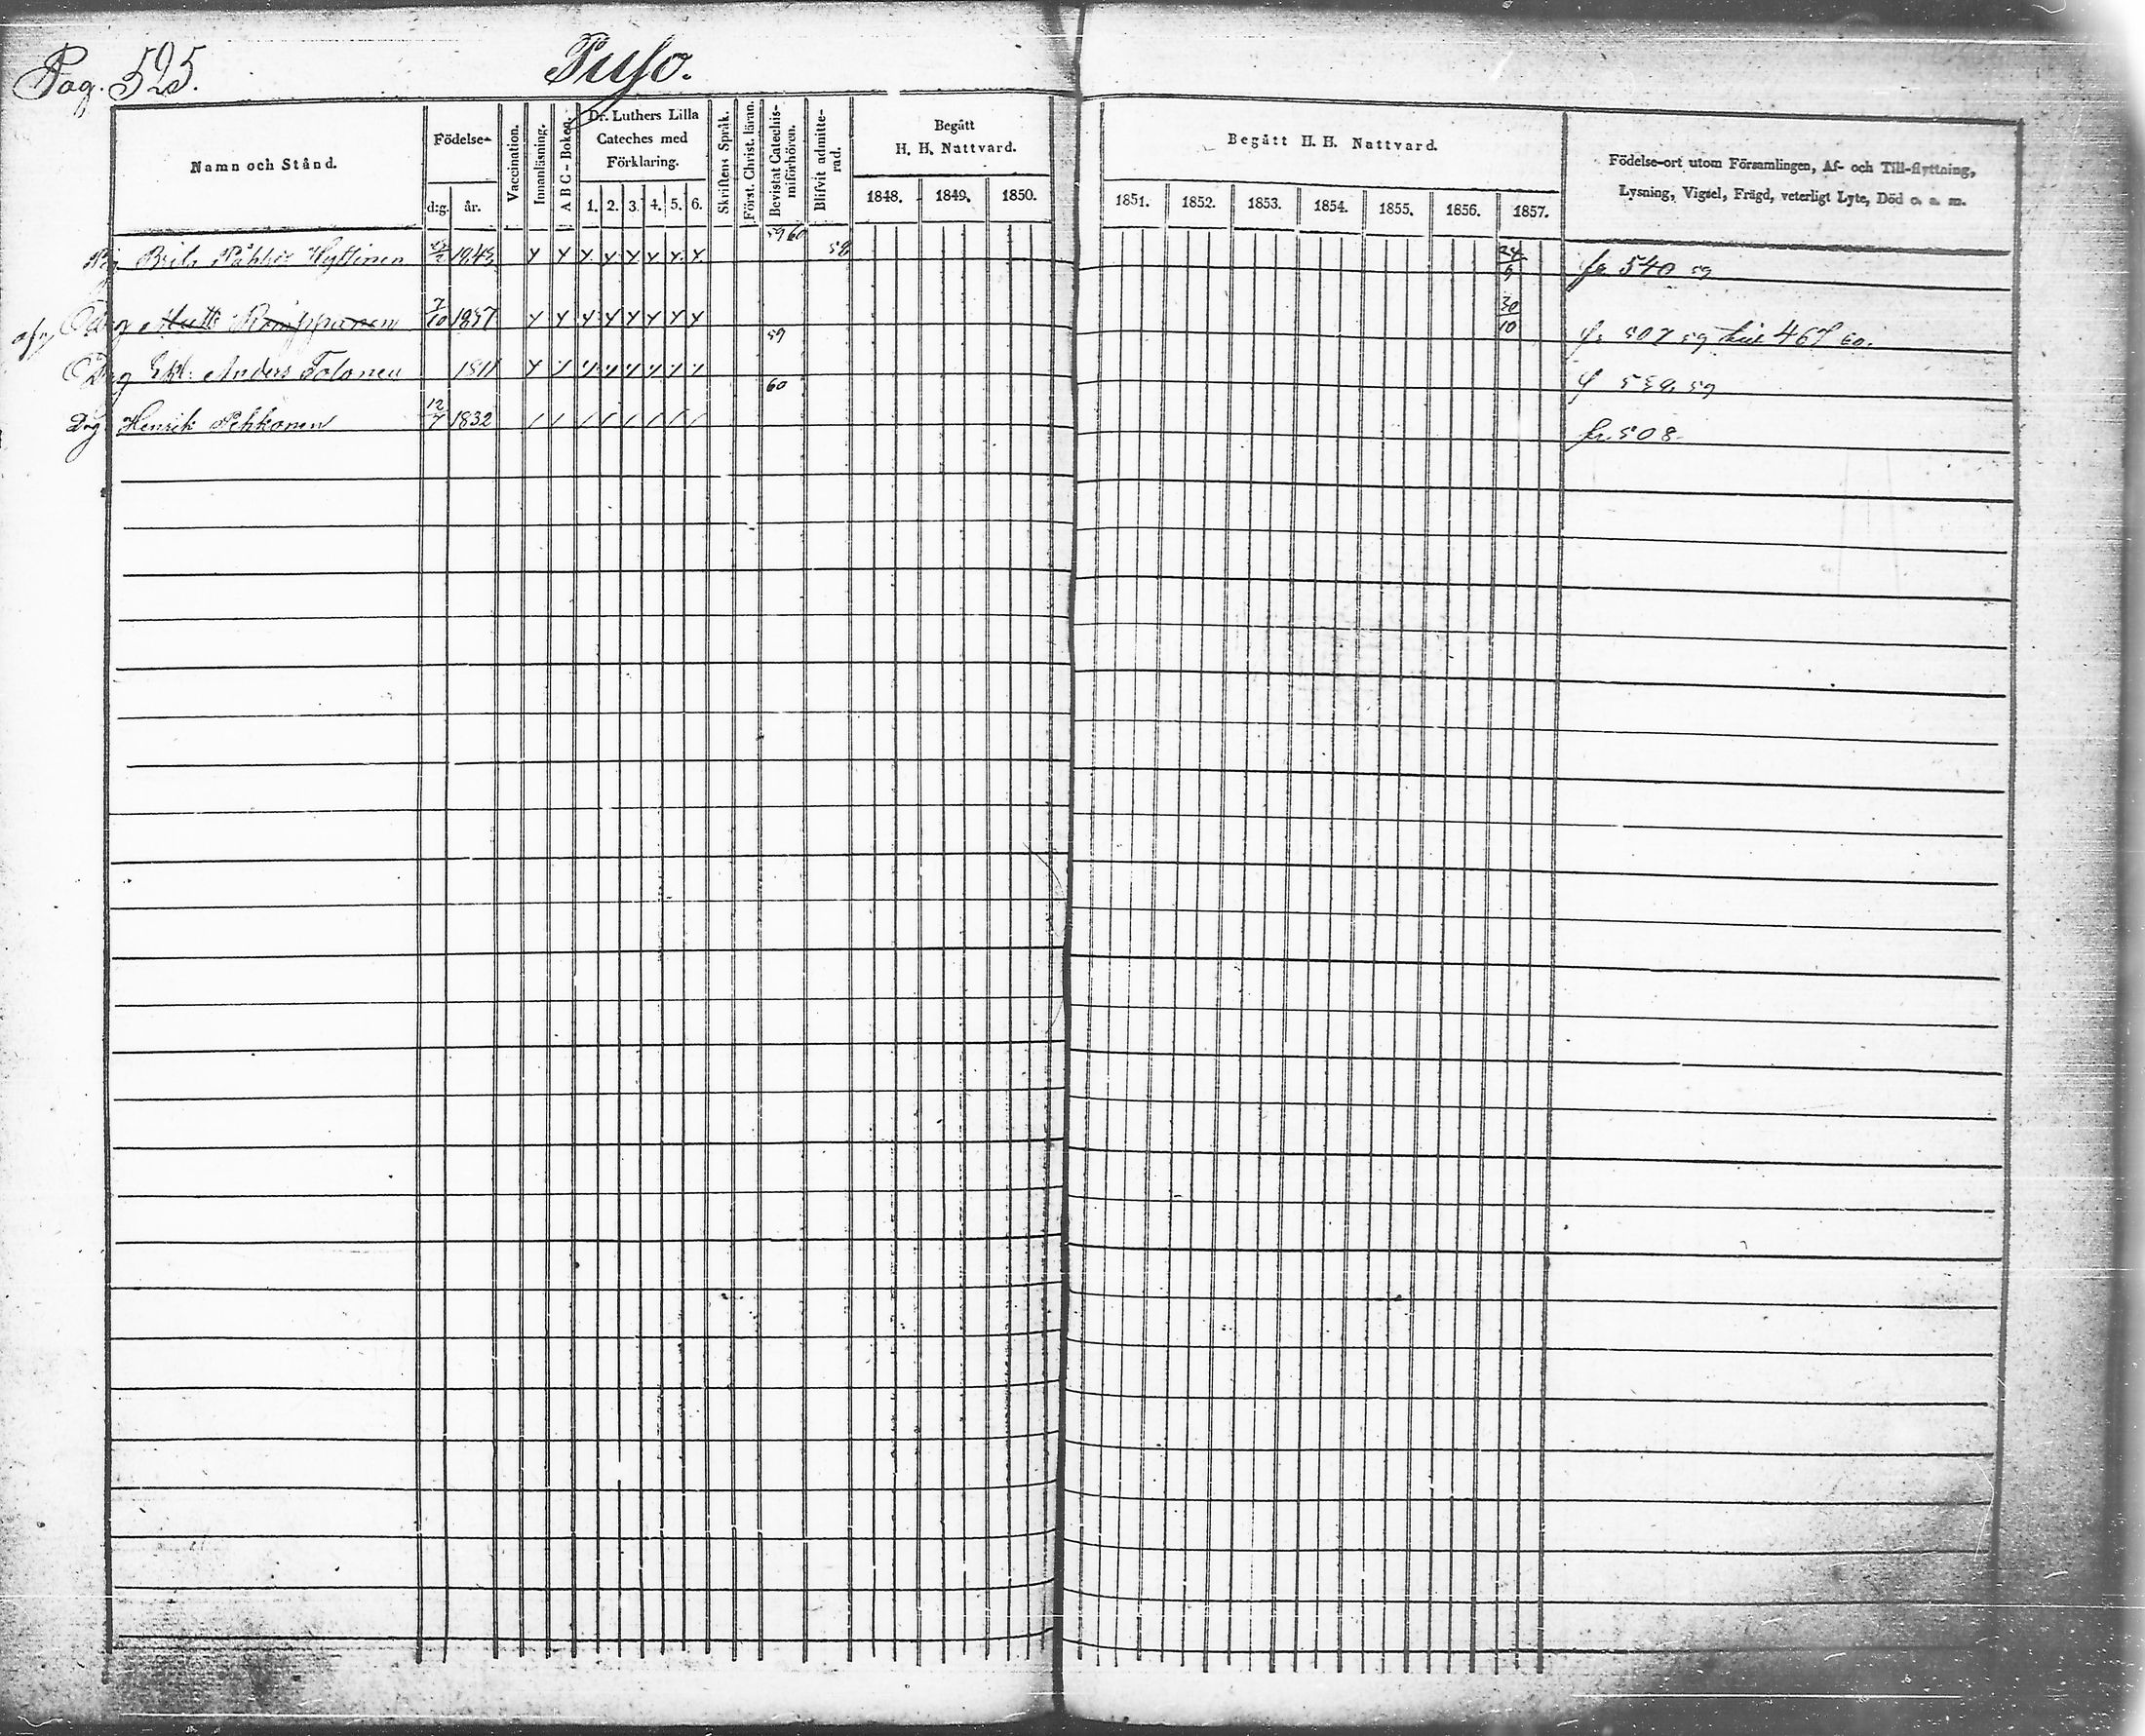 Pag. 525.
Puso.
Namn och Stånd.
Födelse-
d:g. år.
Vaccination.
Innanläsning.
A B C - Boken.
Dr. Luthers Lilla
Cateches med
Förklaring.
1. 2. 3. 4. 5. 6.
Skriftens Språk.
Först. Christ. läran.
Bevistat Catechis-
miförhören.
Blifvit admitte-
rad.
Begått
H. H. Nattvard.
1848. 1849. 1850.
Begått H. H. Nattvard.
1851. 1852. 1853. 1854. 1855. 1856. 1857.
Födelse-ort utom Församlingen, Af- och Till-flyttning,
Lysning, Vigsel, Frägd, veterligt Lyte, Död o. s. m.
Pig Brita Hyttinen 59 60 58 24/9 fr 540 59
Drg Matts Romppanen 7/10 1837 30/10 fr 507 59 467 60.
Drg Anders Tolonen 1811 59 59
Drg Henrik Pehkonen 12/7 1832 60 fr. 508